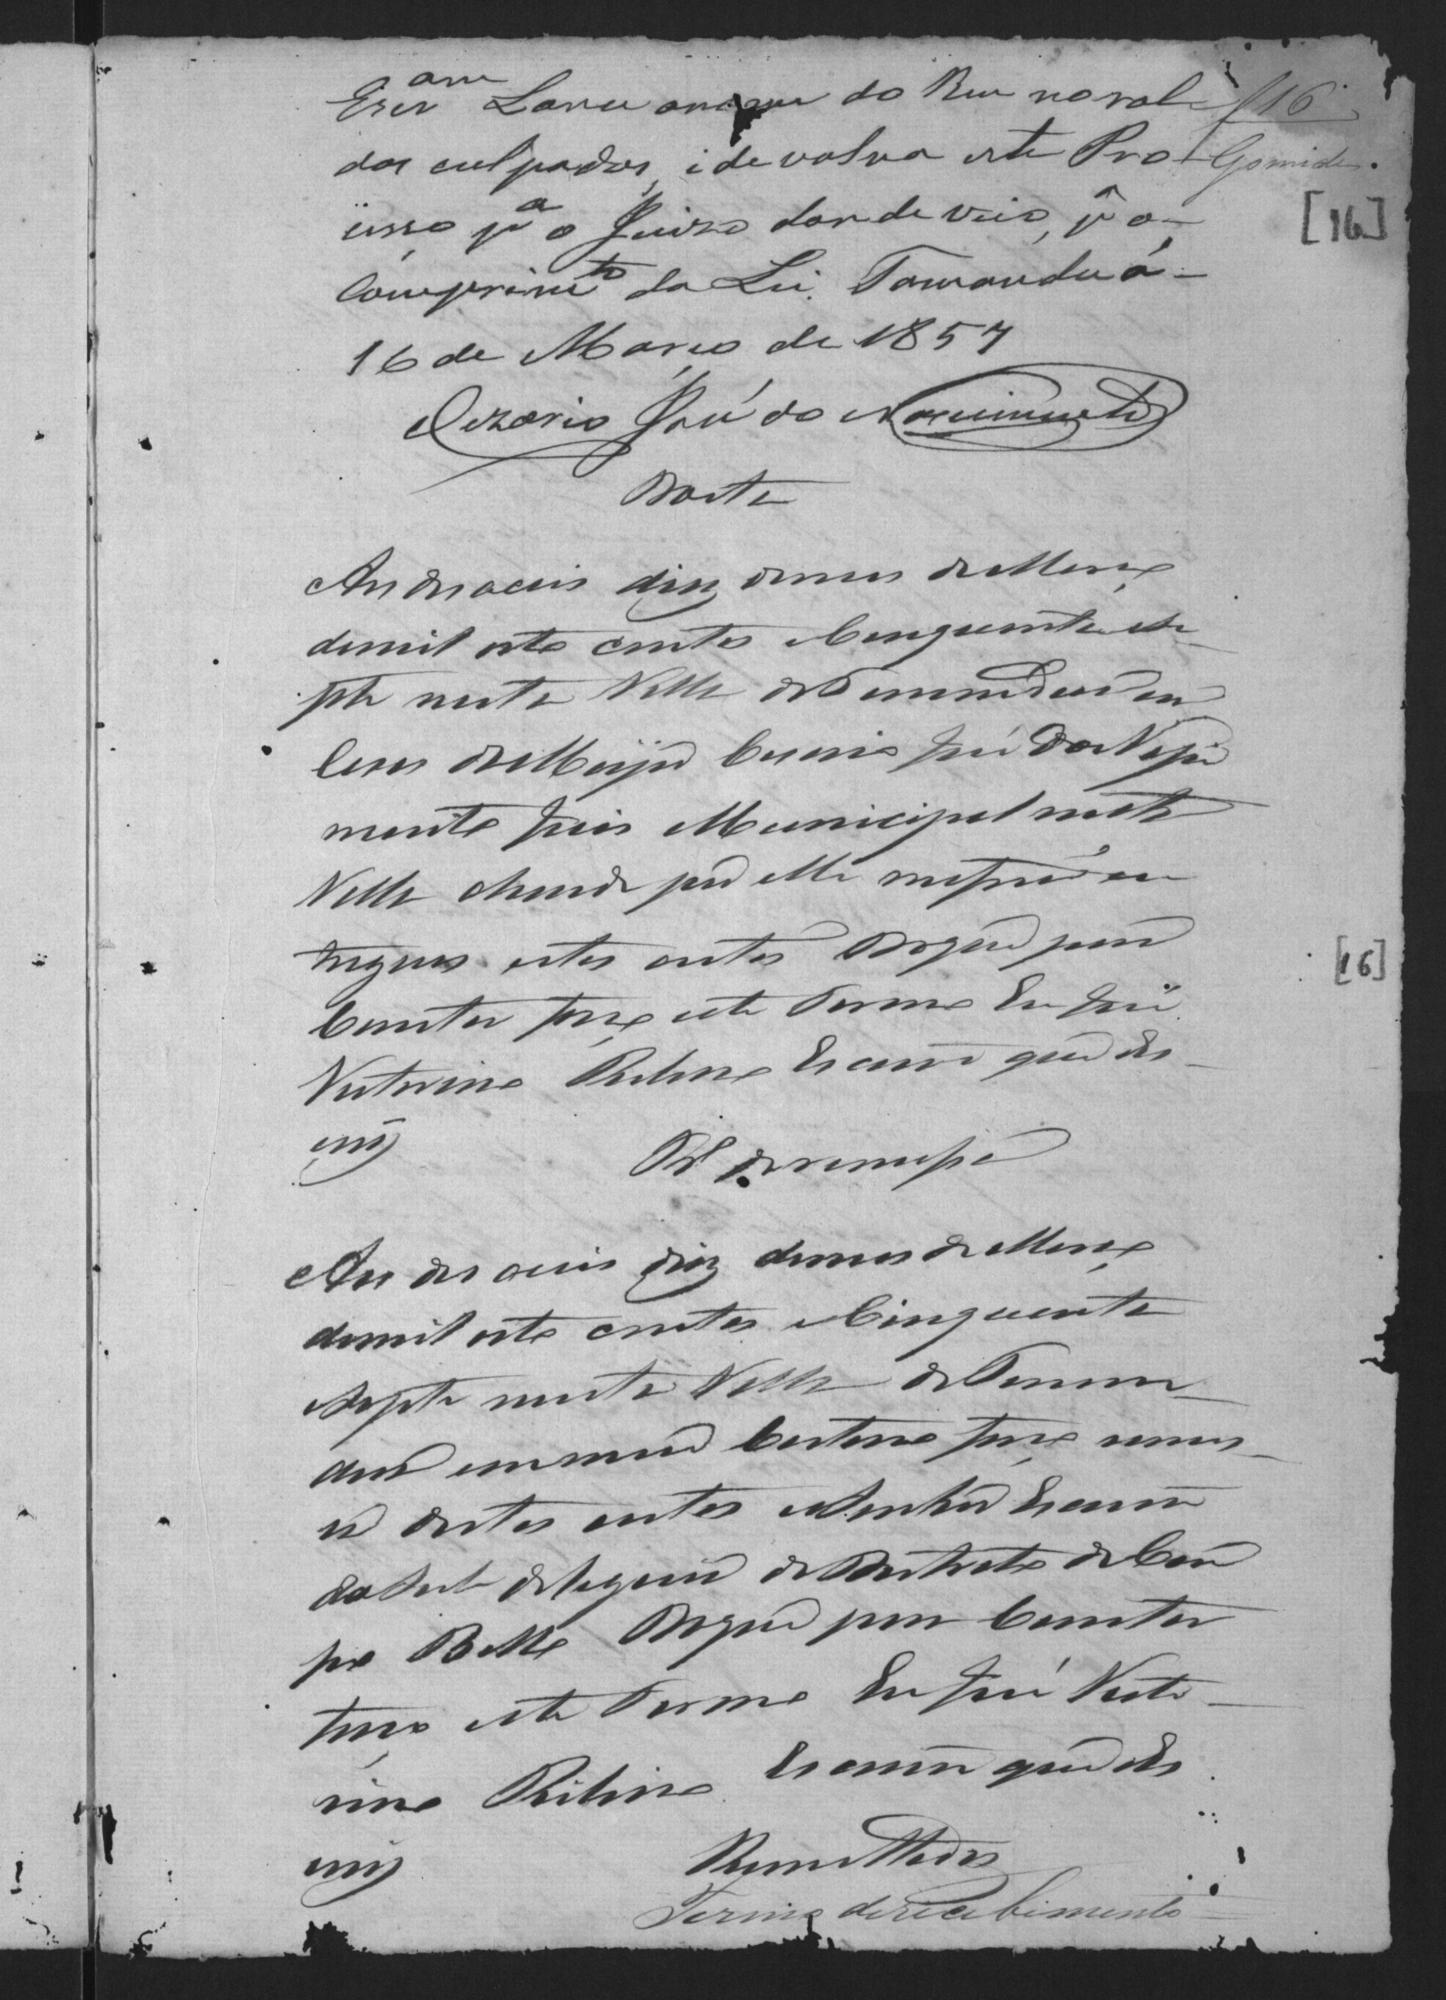 Escr.am Lance o nome do Reu no rol
16
dos culpados, i devolva este Pro-
Gomide
[16]
cesso p.a o Juizo donde veio, p.a o
comprim.to da Lei. Tamanduá
16 de Março de 1857
Cezario José do Nascimento
Data
Aos desaceis dias domes de Março
demil oito centos e Cinquenta e se
pte nesta Villa de Tamanduá em
Casas do Major Cesario José do Nassi
mento Juis Municipal nesta
Villa ahonde por elle me forão en
tregues estes autos do que para
[16]
Constar faço este Termo Eu José
Victorino Ribeiro Escrivam que Es
crevy
D.a de remessa
Aos desaceis dias domes de Março
demil oito centos e Cinquenta
e septe nesta Villa de Taman
duá em meu Cartorio faço remes
sa destes autos ao Senhor Escrivam
da Sub delegacia do Destricto do Cam
po Bello do que para Constar
faço este Termo Eu José Victo
rino Ribeiro Escrivam que Es
crevy
Remettidos
Termo de recebimento